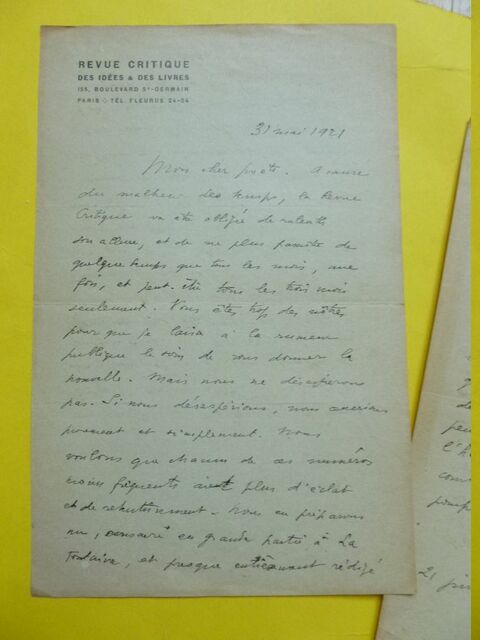 REVUE CRITIQUE
DES IDÉES & DES LIVRES
155, BOULEVARD St-GERMAIN
PARIS ◇ TÉL. FLEURUS 24-84
31 mai 1921
Mon cher poète. A cause
du malheur des temps, la Revue
Critique va être obligée de ralentir
son allure, et de ne plus paraître de
quelque temps que tous les mois, une
fois, et peut-être tous les trois mois
seulement. Vous êtes trop des nôtres
pour que je laisse à la rumeur
publique le soin de vous donner la
nouvelle. Mais nous ne désespérons
pas. Si nous désespérions, nous
purement et simplement. Nous
voulons que chacun de ces numéros
moins fréquents ait plus d'éclat
et de retentissement. Nous en préparons
un, consacré en grande partie à La
Fontaine, et presque entièrement rédigé
de
peu
l'h
pomp
21 jui